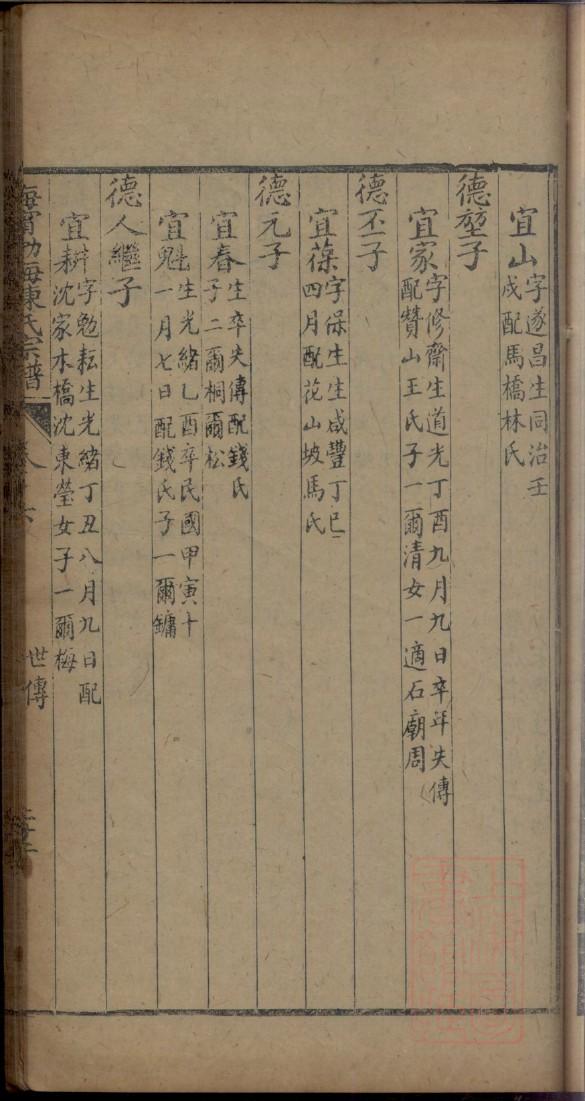 宜山字遂昌生同治壬
戌配馬橋林氏
德堃子
宜家字修齋生道光丁酉九月九日卒年失傳
配贊山王氏子一爾清女一適石廟周
德丕子
宜葆字保生生咸豐丁巳
四月配花山坡馬氏
德元子
宜春生卒失傳配錢氏
子二爾桐爾松
宜魁生光緒乙酉卒民國甲寅十
一月七日配錢氏子一爾鏞
德人繼子
宜耕字勉耘生光緒丁丑八月九日配
沈家木橋沈東瑩女子一爾梅
海寧渤海陳氏宗譜
世傳